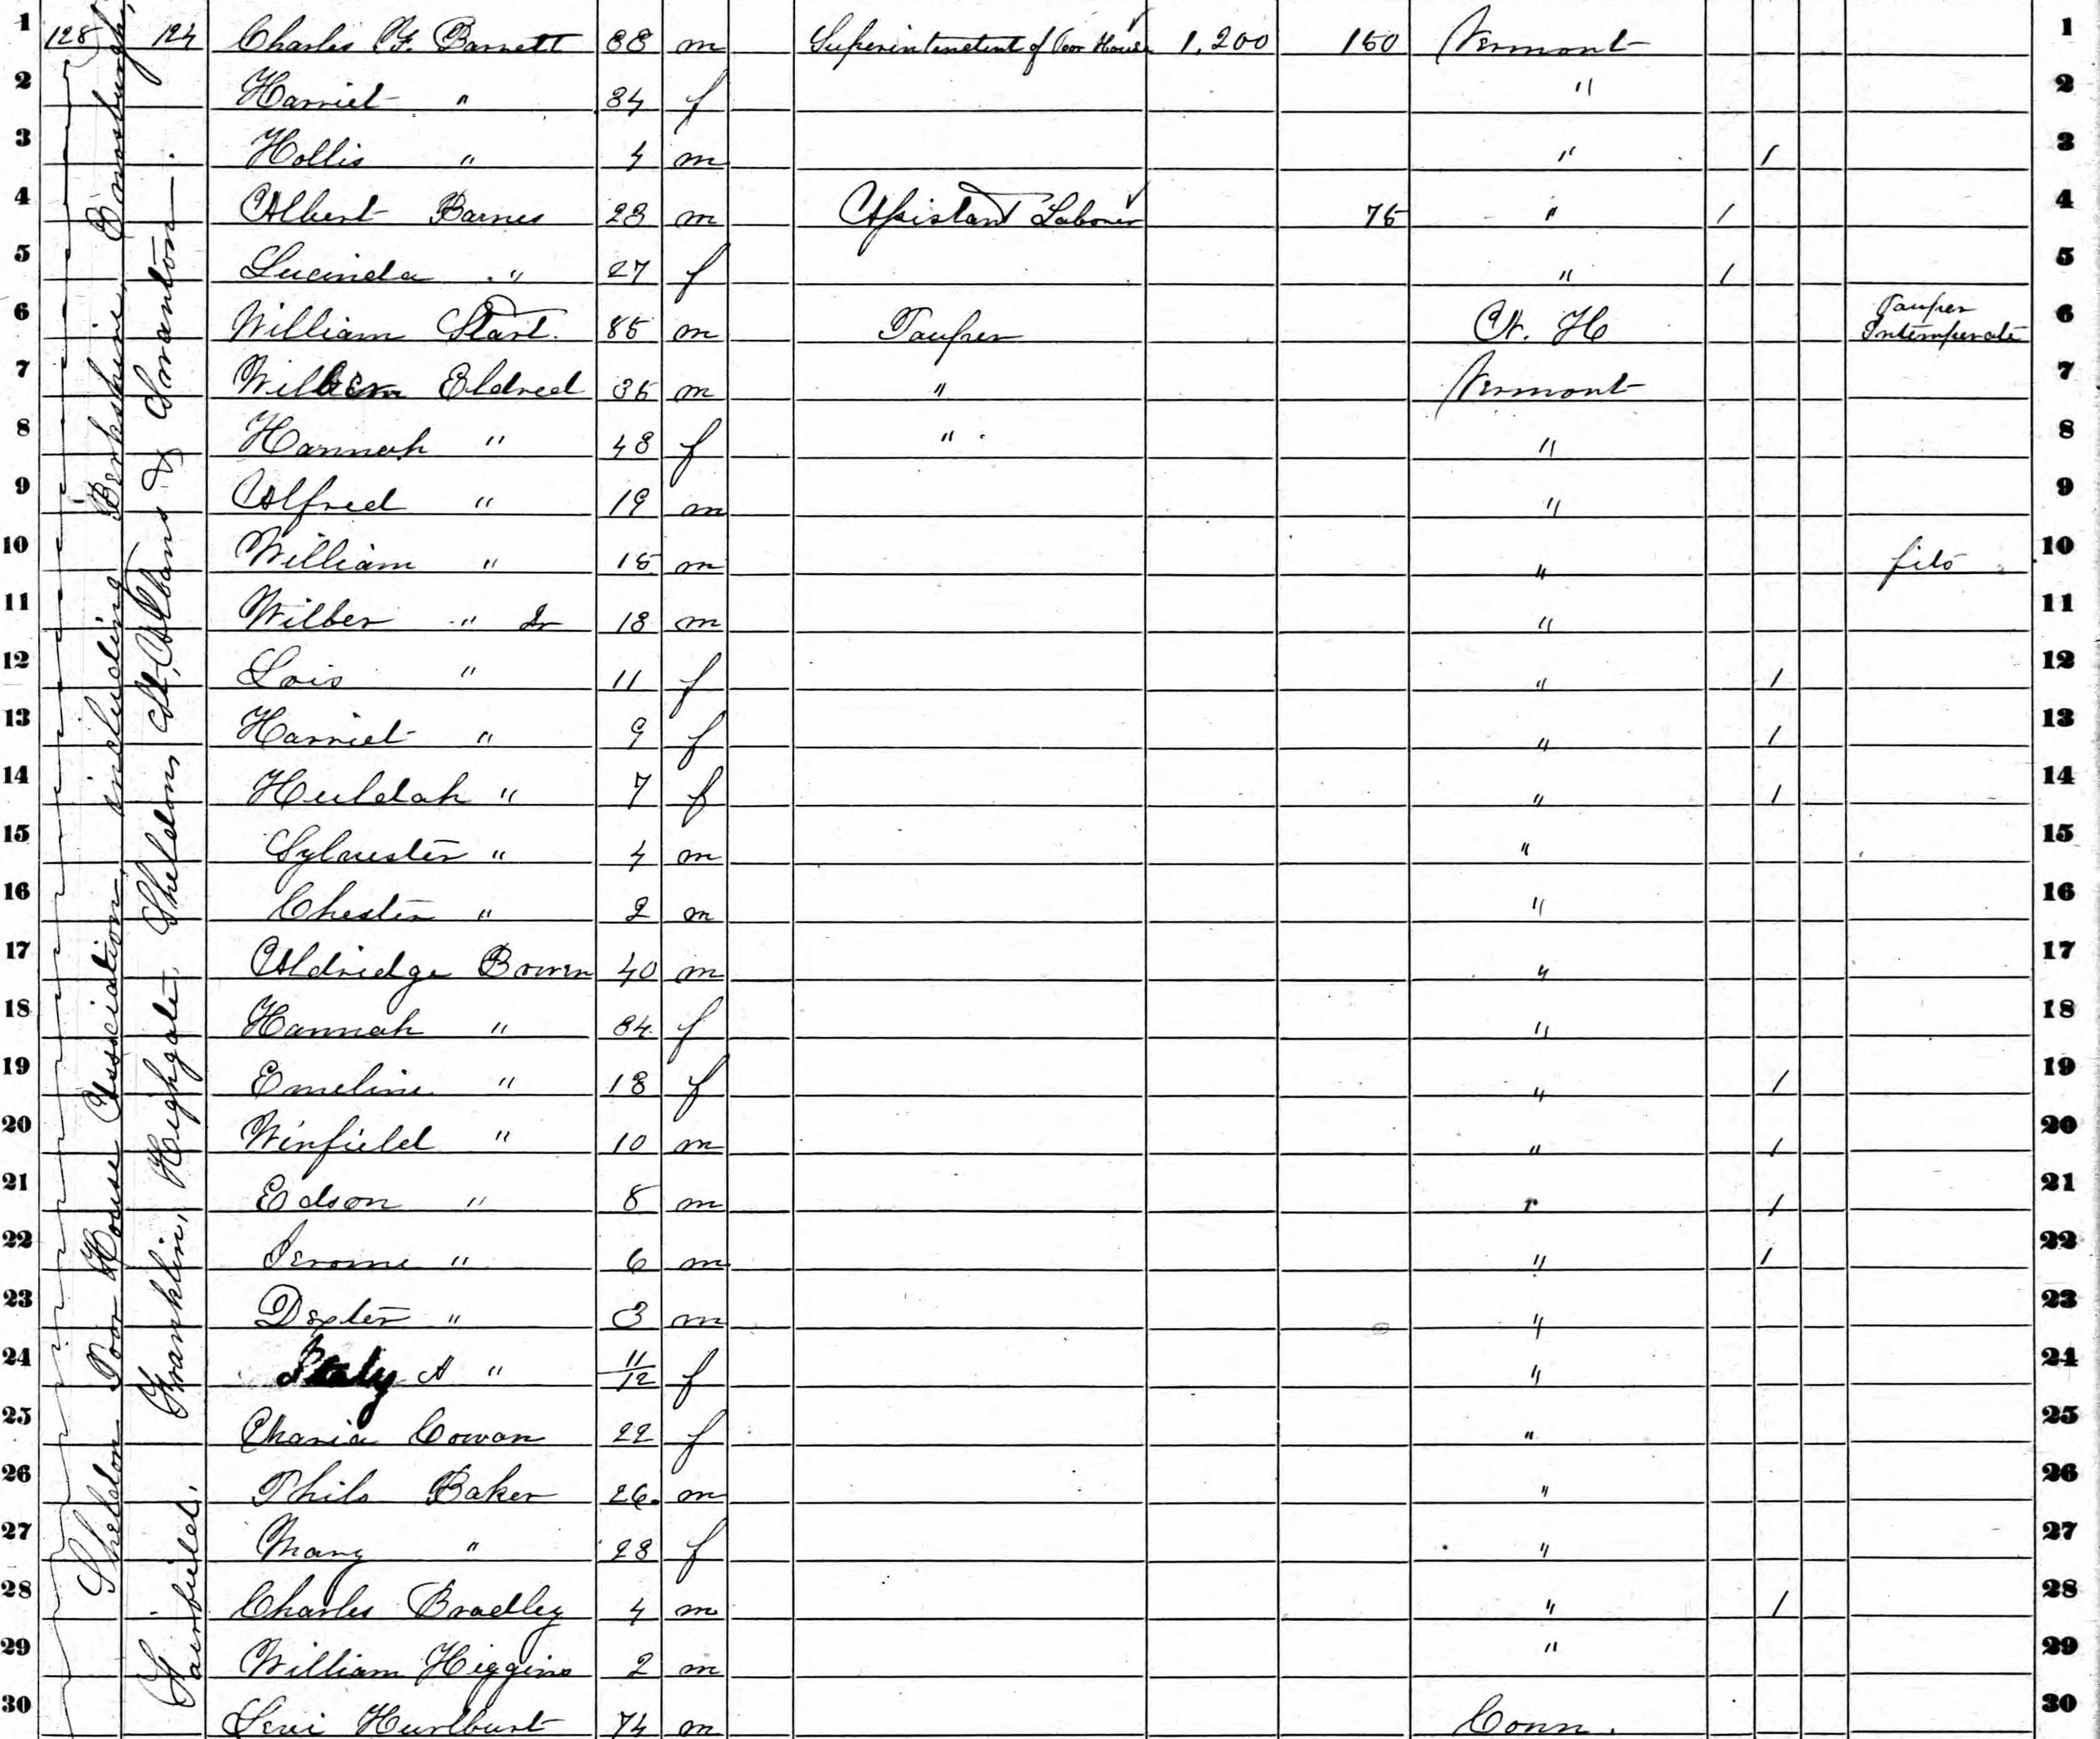 1 128 124 Charles F. Barnett 38 m Superintendent of Poor House 1,200 150 Vermont 1
2 Harriet " 34 f " 2
3 Hollis " 4 m " / 3
4 Albert Barnes 23 m Assistant Laborer 75 " / 4
5 Lucinda " 27 f " / 5
6 William Start. 85 m Pauper N. H Pauper Intemperate 6
7 Wilber Eldred 35 m " Vermont 7
8 Hannah " 48 f " " 8
9 Alfred " 19 m " 9
10 William " 15 m " fits 10
11 Wilber " Jr 13 m " 11
12 Lois " 11 f " / 12
13 Harriet " 9 f " / 13
14 Huldah " 7 f " / 14
15 Sylvester " 4 m " 15
16 Chester " 2 m " 16
17 Aldridge Bowen 40 m " 17
18 Hannah " 34 f " 18
19 Emeline " 13 f " / 19
20 Winfield " 10 m " / 20
21 Edson " 8 m " / 21
22 Jerome " 6 m " / 22
23 Dexter " 3 m " 23
24 A " 11/12 f " 24
25 Cowan 22 f " 25
26 Philo Baker 26 m " 26
27 Mary " 28 f " 27
28 Charles Bradley 4 m " / 28
29 William Higgins 2 m " 29
30 Levi Hurlburt 74 m Conn. 30
Sheldon Poor House Association, including Berkshire, Enosburgh,
Fairfield, Franklin, Highgate, Sheldon, St. Albans & Swanton